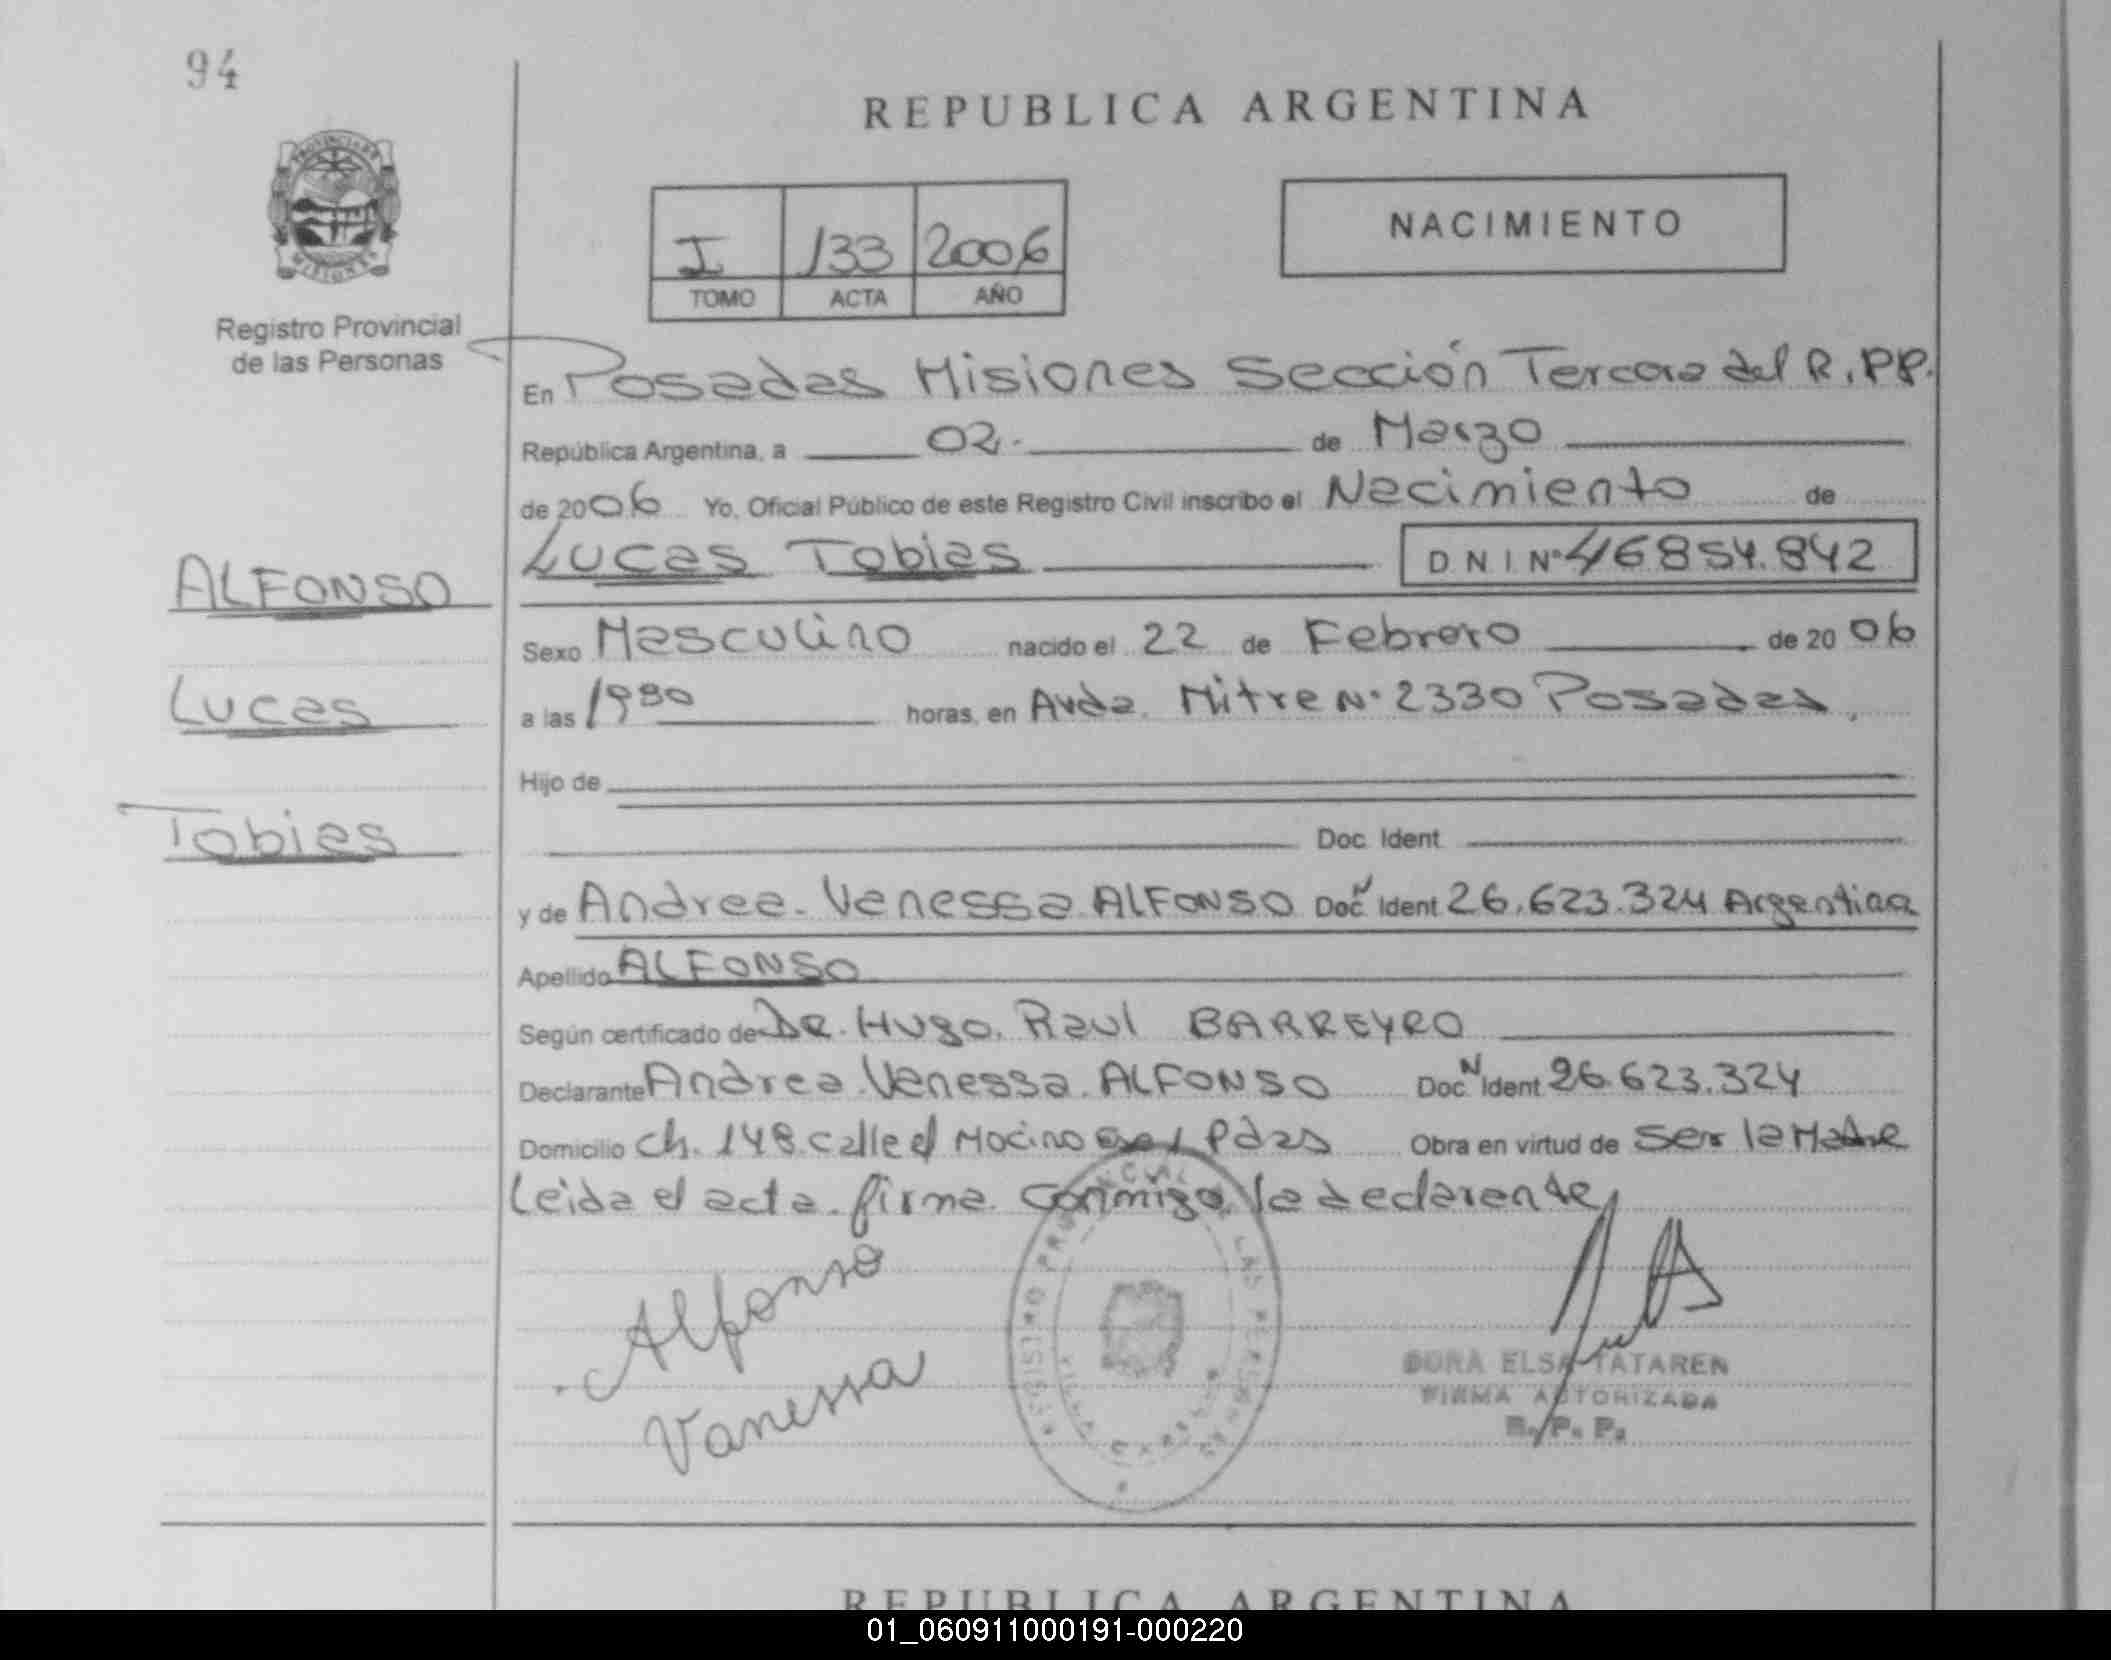 94
REPUBLICA ARGENTINA
PROVINCIA DE
MISIONES
Registro Provincial
de las Personas
I 133 2006
TOMO ACTA AÑO
NACIMIENTO
En Posadas Misiones Sección Tercera del R.PP.
República Argentina, a 02. de Marzo
de 2006 Yo, Oficial Público de este Registro Civil inscribo el Nacimiento de
Lucas Tobias D N I N° 46854.842
ALFONSO
Lucas
Tobias
Sexo Masculino nacido el 22 de Febrero de 2006
a las horas, en Avda. Mitre N° 2330 Posadas,
Hijo de
Doc. Ident
y de Andrea Vanessa ALFONSO Doc. N Ident 26.623.324 Argentina
Apellido ALFONSO
Según certificado de DR. Hugo Raul BARREYRO
Declarante Andrea Vanessa ALFONSO Doc. N Ident 26.623.324
Domicilio Ch. 148 calle el Mocino Pdas Obra en virtud de Ser la Madre
Leida el acta firma conmigo la declarante
Alfonso
Vanessa
REGISTRO PROVINCIAL DE LAS PERSONAS
DORA ELSA TATAREN
FIRMA AUTORIZADA
R. P. P.
REPUBLICA ARGENTINA
01_060911000191-000220